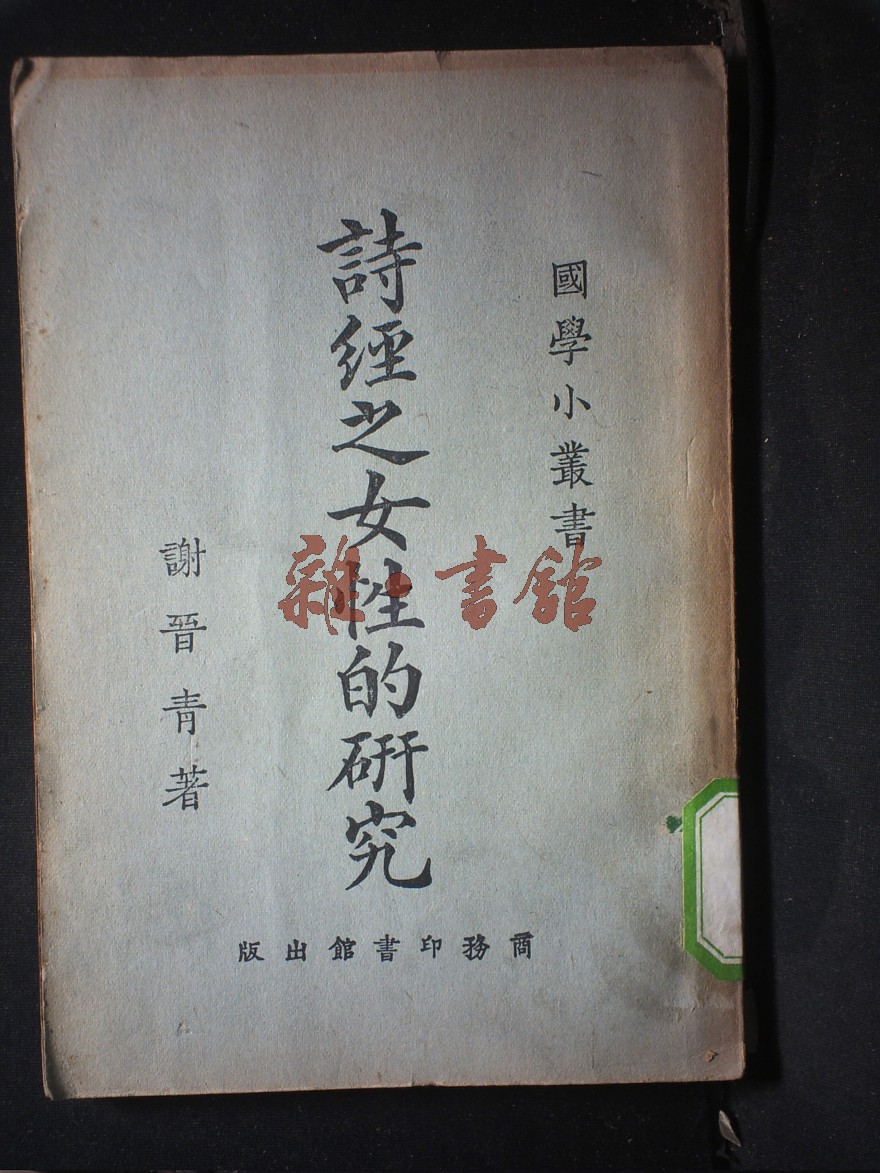 國學小叢書
詩經之女性的研究
謝晉青著
商務印書館出版
雜·書館